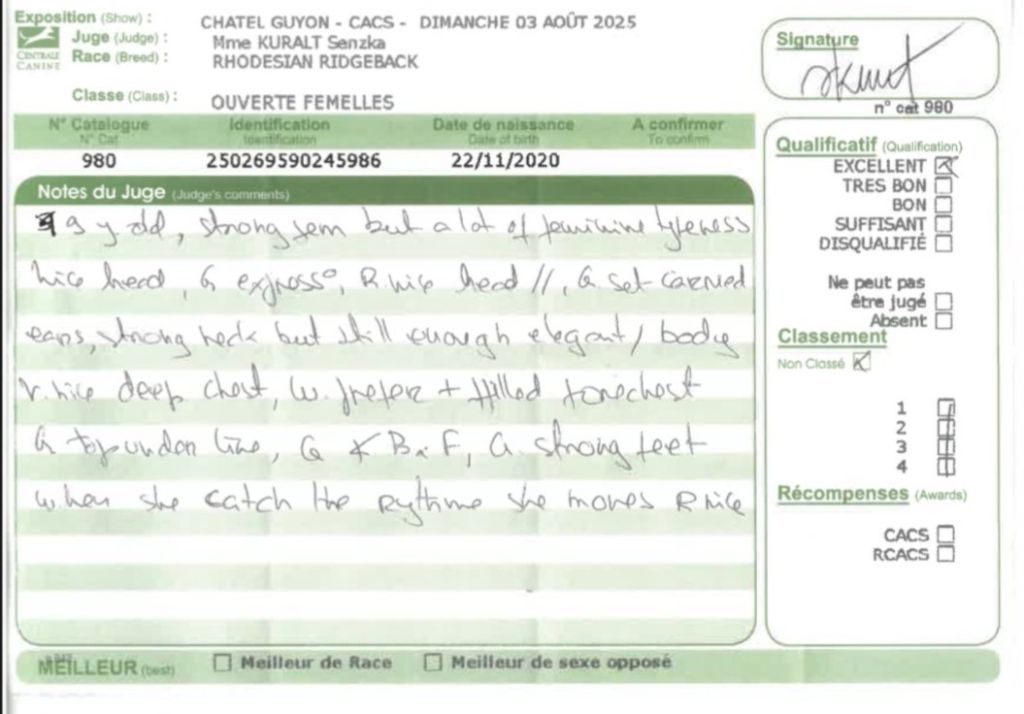 Exposition (Show) : CHATEL GUYON - CACS - DIMANCHE 03 AOÛT 2025
CENTRALE CANINE
Juge (Judge) : Mme KURALT Senzka
Race (Breed) : RHODESIAN RIDGEBACK
Classe (Class) : OUVERTE FEMELLES
Signature
n° cat 980
N° Catalogue Identification Date de naissance A confirmer
N° Cat Identification Date of birth To confirm
980 250269590245986 22/11/2020
Notes du Juge (Judge's comments)
y old, strong fem but a lot of feminine
nice head, G express°, R. nice head //, G set carried
ears, strong neck but still enough elegant / body
V. nice deep chest, W. + filled forechest
G top under line, G B. F, G. strong feet
when she catch the rythme she moves R nice
Qualificatif (Qualification)
EXCELLENT
TRES BON
BON
SUFFISANT
DISQUALIFIÉ
Ne peut pas
être jugé
Absent
Classement
Non Classé
1
2
3
4
Récompenses (Awards)
CACS
RCACS
MEILLEUR (best) Meilleur de Race Meilleur de sexe opposé